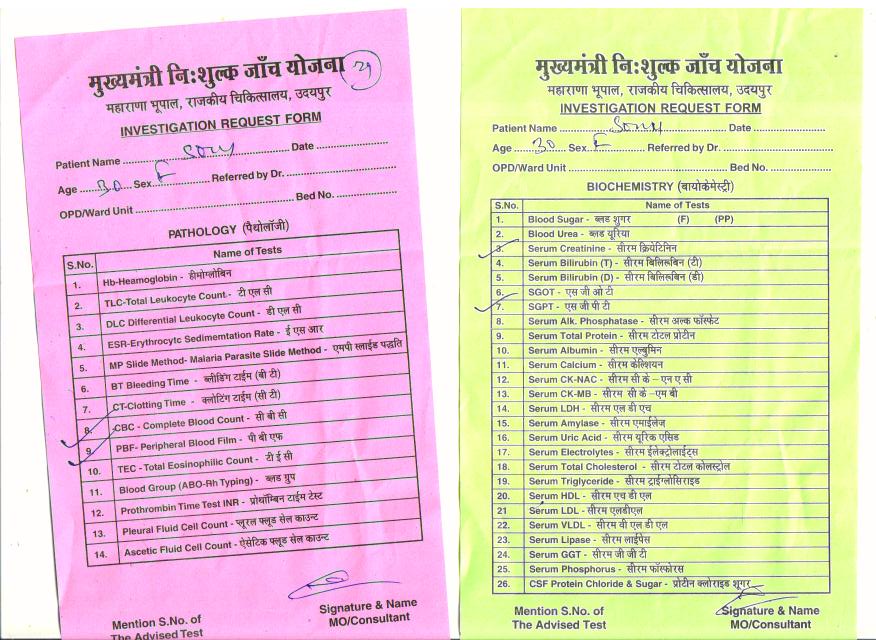 मुख्यमंत्री निःशुल्क जाँच योजना
29
महाराणा भूपाल, राजकीय चिकित्सालय, उदयपुर
INVESTIGATION REQUEST FORM
Patient Name Sony Date
Age 30 Sex F Referred by Dr.
OPD/Ward Unit Bed No.
PATHOLOGY (पैथोलॉजी)
S.No. Name of Tests
1. Hb-Heamoglobin - हीमोग्लोबिन
2. TLC-Total Leukocyte Count - टी एल सी
3. DLC Differential Leukocyte Count - डी एल सी
4. ESR-Erythrocytc Sedimentation Rate - ई एस आर
5. MP Slide Method- Malaria Parasite Slide Method - एमपी स्लाईड पद्धति
6. BT Bleeding Time - ब्लीडिंग टाईम (बी टी)
7. CT-Clotting Time - क्लोटिंग टाईम (सी टी)
8. CBC - Complete Blood Count - सी बी सी
9. PBF- Peripheral Blood Film - पी बी एफ
10. TEC - Total Eosinophilic Count - टी ई सी
11. Blood Group (ABO-Rh Typing) - ब्लड ग्रुप
12. Prothrombin Time Test INR - प्रोथॉम्बिन टाईम टेस्ट
13. Pleural Fluid Cell Count - प्लूरल फ्लूड सेल काउन्ट
14. Ascetic Fluid Cell Count - ऐसेटिक फ्लूड सेल काउन्ट
Mention S.No. of
The Advised Test
Signature & Name
MO/Consultant
मुख्यमंत्री निःशुल्क जाँच योजना
महाराणा भूपाल, राजकीय चिकित्सालय, उदयपुर
INVESTIGATION REQUEST FORM
Patient Name Sony Date
Age 30 Sex F Referred by Dr.
OPD/Ward Unit Bed No.
BIOCHEMISTRY (बायोकेमेस्ट्री)
S.No. Name of Tests
1. Blood Sugar - ब्लड शुगर (F) (PP)
2. Blood Urea - ब्लड यूरिया
3. Serum Creatinine - सीरम क्रियेटिनिन
4. Serum Bilirubin (T) - सीरम बिलिरूबिन (टी)
5. Serum Bilirubin (D) - सीरम बिलिरूबिन (डी)
6. SGOT - एस जी ओ टी
7. SGPT - एस जी पी टी
8. Serum Alk. Phosphatase - सीरम अल्क फॉस्फेट
9. Serum Total Protein - सीरम टोटल प्रोटीन
10. Serum Albumin - सीरम एल्बुमिन
11. Serum Calcium - सीरम केल्शियन
12. Serum CK-NAC - सीरम सी के - एन ए सी
13. Serum CK-MB - सीरम सी के - एम बी
14. Serum LDH - सीरम एल डी एच
15. Serum Amylase - सीरम एमाईलेज
16. Serum Uric Acid - सीरम यूरिक एसिड
17. Serum Electrolytes - सीरम ईलेक्ट्रोलाईट्स
18. Serum Total Cholesterol - सीरम टोटल कोलस्ट्रोल
19. Serum Triglyceride - सीरम ट्राईग्लोसिराइड
20. Serum HDL - सीरम एच डी एल
21 Serum LDL - सीरम एलडीएल
22. Serum VLDL - सीरम वी एल डी एल
23. Serum Lipase - सीरम लाईपेस
24. Serum GGT - सीरम जी जी टी
25. Serum Phosphorus - सीरम फॉस्फोरस
26. CSF Protein Chloride & Sugar - प्रोटीन क्लोराइड शूगर
Mention S.No. of
The Advised Test
Signature & Name
MO/Consultant